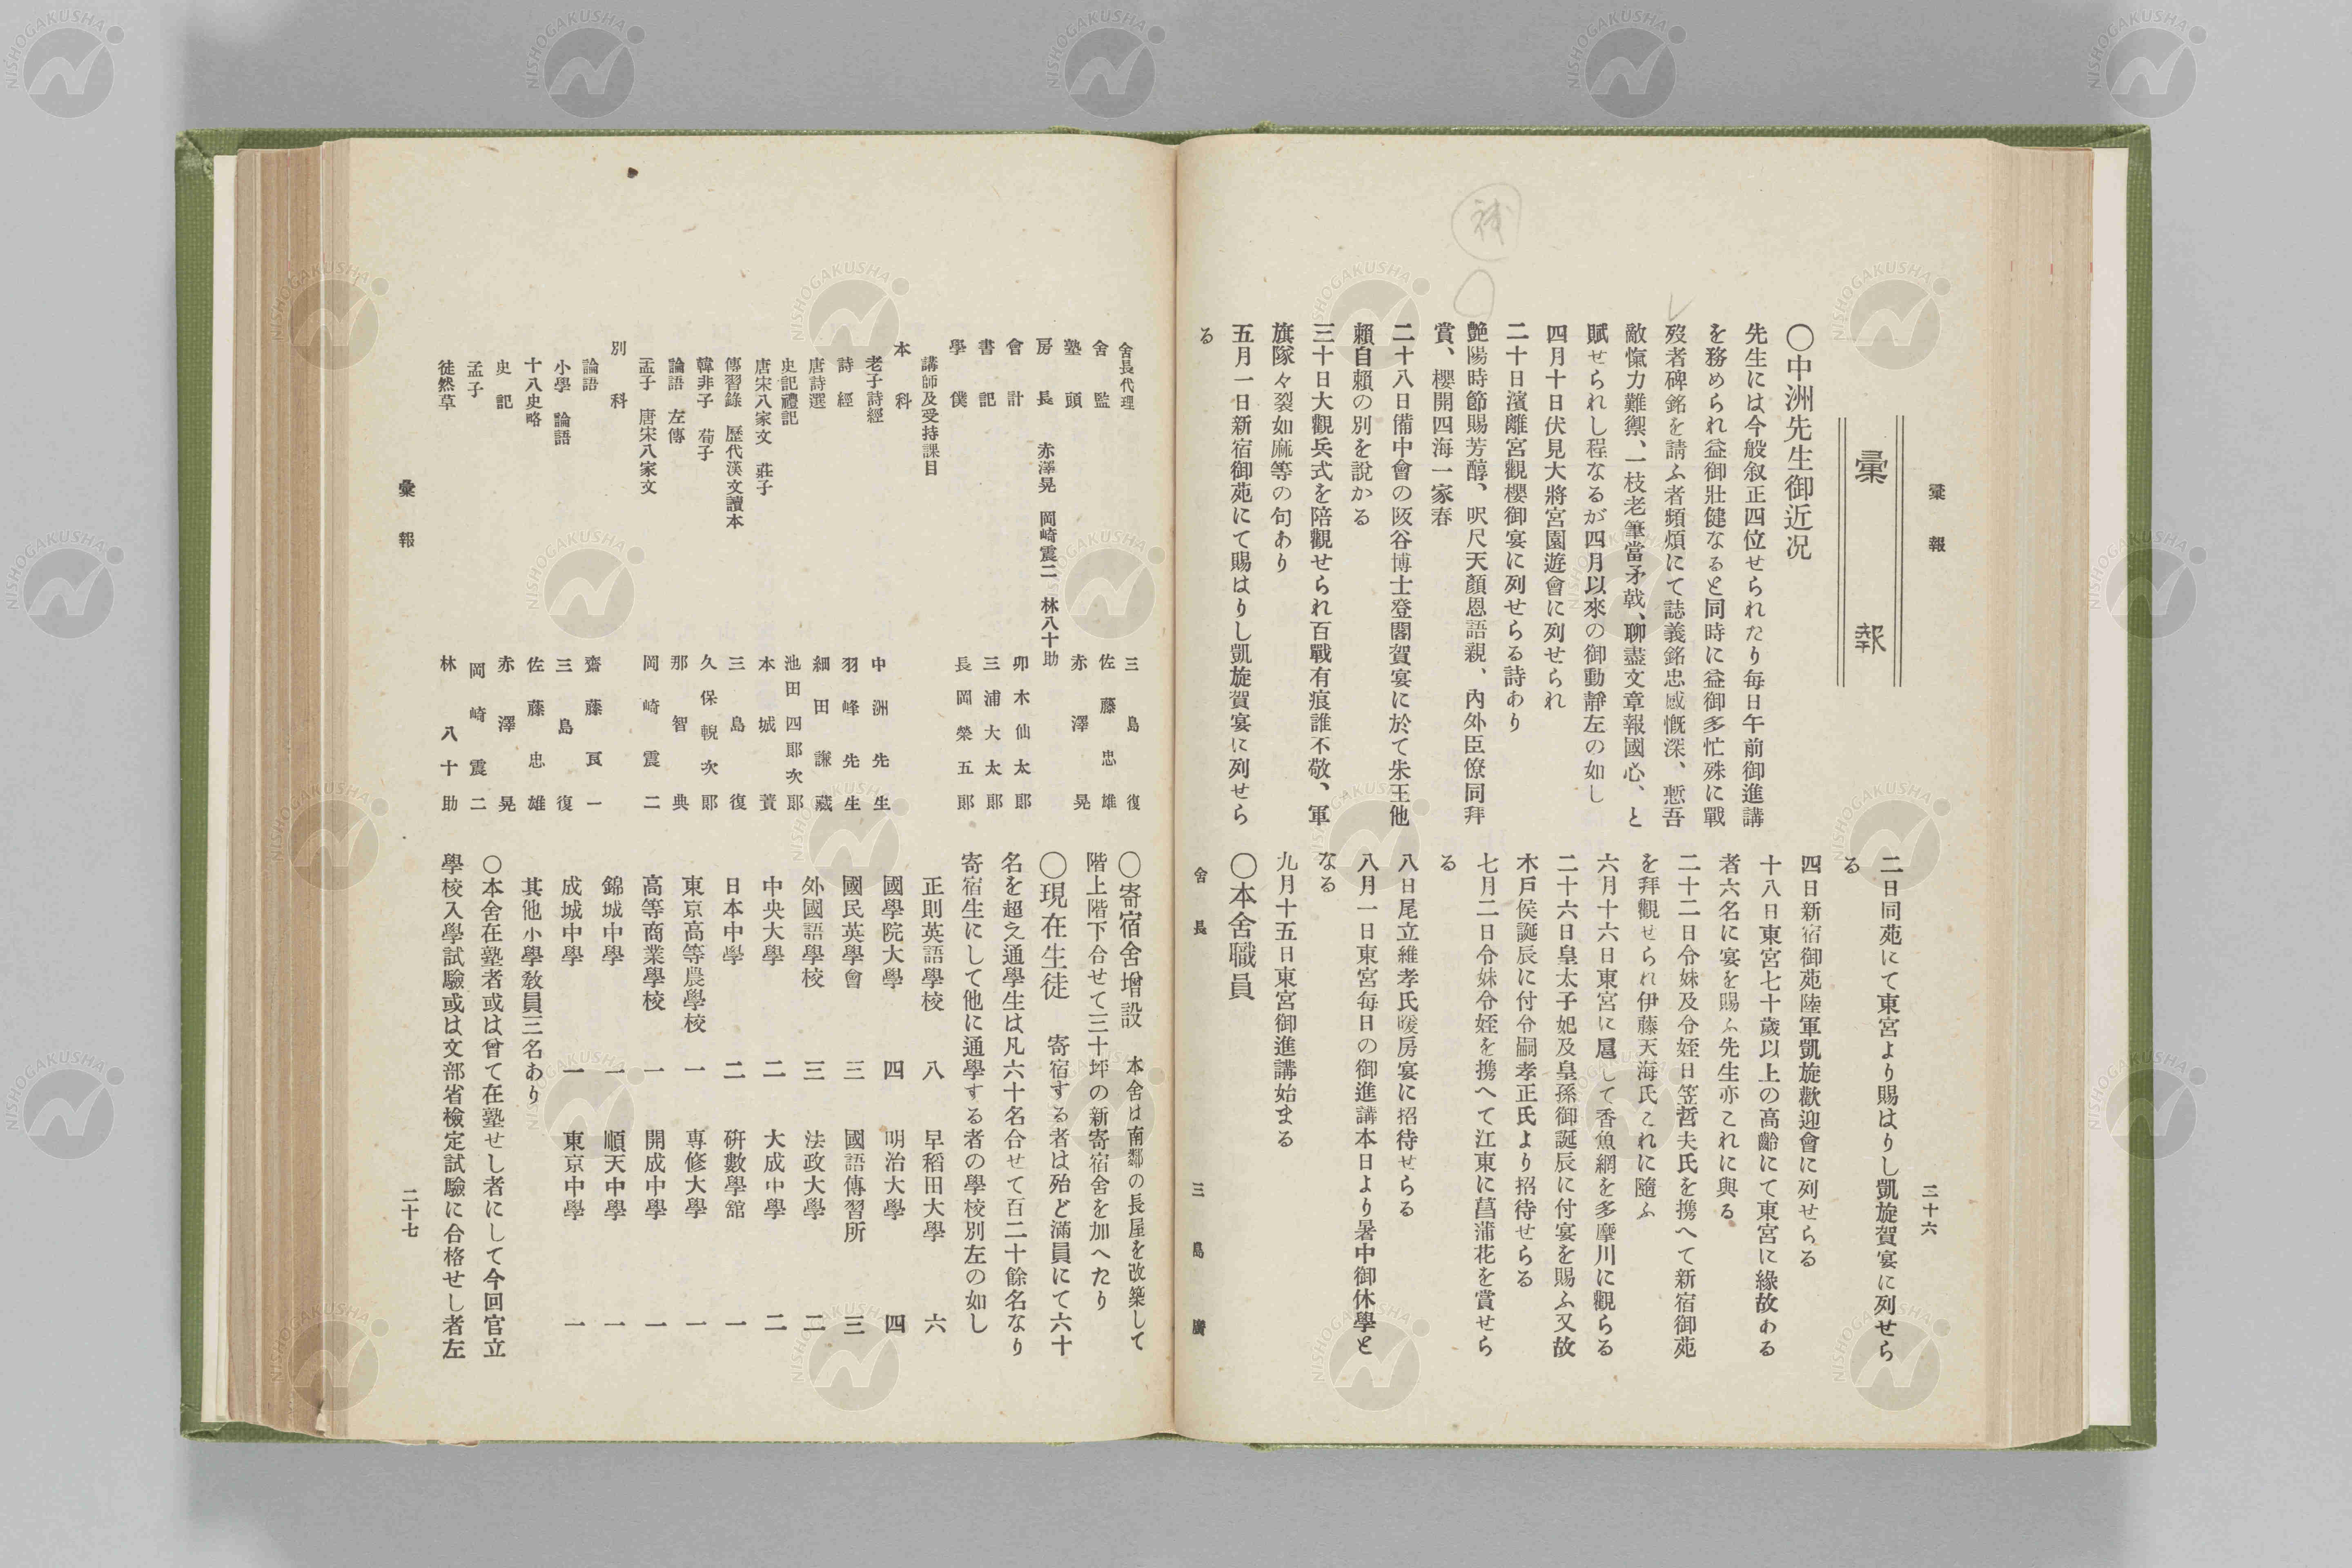 彙報
三十六
彙報
〇中洲先生御近況
先生には今般叙正四位せられたり每日午前御進講
を務められ益御壯健なると同時に益御多忙殊に戰
歿者碑銘を請ふ者頻煩にて誌義銘忠感慨深、慙吾
敵愾力難禦、一枝老筆當矛戟、聊盡文章報國心、と
賦せられし程なるが四月以來の御動靜左の如し
四月十日伏見大將宮園遊會に列せられ
二十日濱離宮觀櫻御宴に列せらる詩あり
艶陽時節賜芳醇、咫尺天顏恩語親、內外臣僚同拜
賞、櫻開四海一家春
二十八日備中會の阪谷博士登閣賀宴に於て朱王他
賴自賴の別を說かる
三十日大觀兵式を陪觀せられ百戰有痕誰不敬、軍
旗隊々裂如麻等の句あり
五月一日新宿御苑にて賜はりし凱旋賀宴に列せら
る
二日同苑にて東宮より賜はりし凱旋賀宴に列せら
る
四日新宿御苑陸軍凱旋歡迎會に列せらる
十八日東宮七十歲以上の高齡にて東宮に緣故ある
者六名に宴を賜ふ先生亦これに與る
二十二日令妹及令姪日笠哲夫氏を携へて新宿御苑
を拜觀せられ伊藤天海氏これに隨ふ
六月十六日東宮に扈して香魚網を多摩川に觀らる
二十六日皇太子妃及皇孫御誕辰に付宴を賜ふ又故
木戶侯誕辰に付令嗣孝正氏より招待せらる
七月二日令妹令姪を携へて江東に菖蒲花を賞せら
る
八日尾立維孝氏暖房宴に招待せらる
八月一日東宮每日の御進講本日より暑中御休學と
なる
九月十五日東宮御進講始まる
〇本舍職員
舍長 三島廣
舍長代理 三島復
舍監 佐藤忠雄
塾頭 赤澤晃
房長 赤澤晃 岡崎震二 林八十助
會計 卯木仙太郎
書記 三浦大太郎
學僕 長岡榮五郎
講師及受持課目
本科
老子詩經 中洲先生
詩經 羽峰先生
唐詩選 細田謙藏
史記禮記 池田四郎次郎
唐宋八家文 莊子 本城蕢
傳習錄 歷代漢文讀本 三島復
韓非子 荀子 久保輗次郎
論語 左傳 那智典
孟子 唐宋八家文 岡崎震二
別科
論語 齋藤頁一
小學 論語 三島復
十八史略 佐藤忠雄
史記 赤澤晃
孟子 岡崎震二
徒然草 林八十助
〇寄宿舍增設 本舍は南鄰の長屋を改築して
階上階下合せて三十坪の新寄宿舍を加へたり
〇現在生徒 寄宿する者は殆ど滿員にて六十
名を超え通學生は凡六十名合せて百二十餘名なり
寄宿生にして他に通學する者の學校別左の如し
正則英語學校 八 早稻田大學 六
國學院大學 四 明治大學 四
國民英學會 三 國語傳習所 三
外國語學校 三 法政大學 二
中央大學 二 大成中學 二
日本中學 二 硏數學舘 一
東京高等農學校 一 專修大學 一
高等商業學校 一 開成中學 一
錦城中學 一 順天中學 一
成城中學 一 東京中學 一
其他小學敎員三名あり
〇本舍在塾者或は曾て在塾せし者にして今回官立
學校入學試驗或は文部省檢定試驗に合格せし者左
彙報
二十七